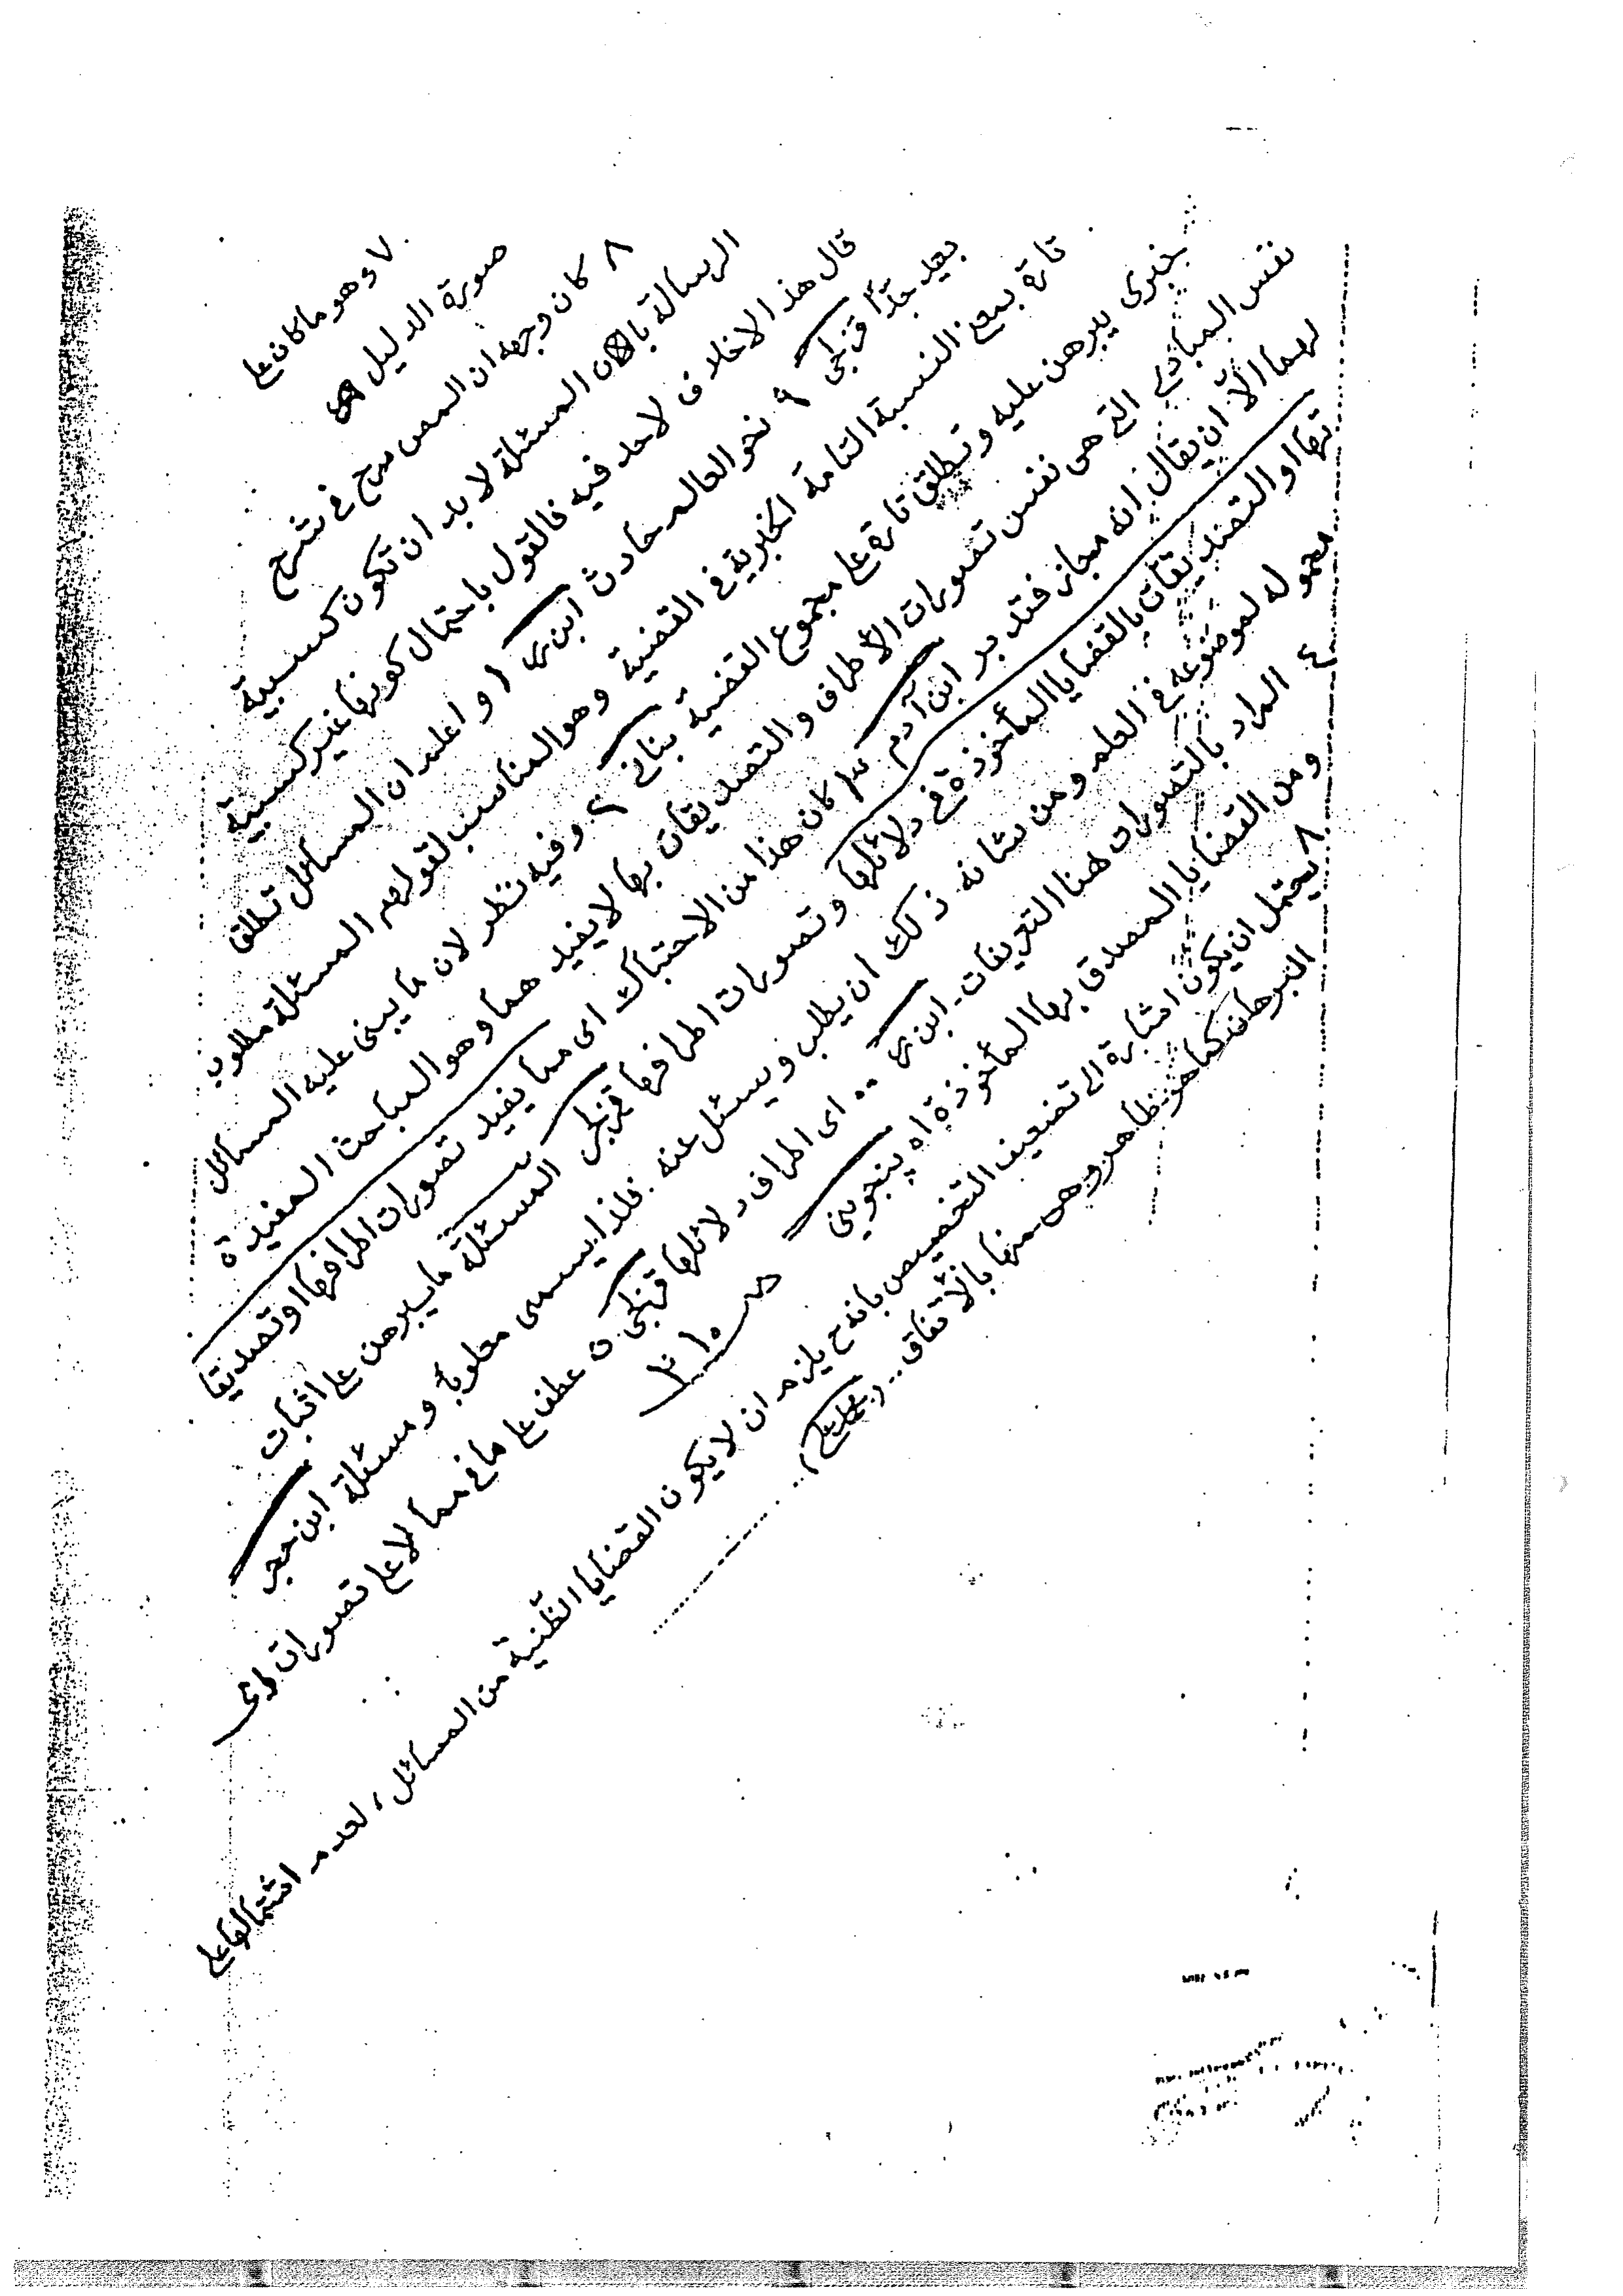 ٧ وهو ما كان على
صورة الدليل
٨ كان وجهه ان المص صرح في شرح
الرسالة بان المسئلة لا بد ان تكون كسبية
قال هذا الاخلاف لاحد فيه فالقول باحتمال كونها غير كسبية
بعيد جدًا قزلجى ٩ نحو العالم حادث ابن ى ١ واعلم ان المسائل تطلق
تارة بمعنى النسبة التامة الخبرية في القضية وهو المناسب لقولهم المسئلة مطلوب
خبرى يبرهن عليه وتطلق تارة على مجموع القضية بناني ٢ وفيه نظر لان ما يبنى عليه المسائل
نفس المبادى التى هى نفس تصورات الاطراف والتصديقات بها لا يفيد هما وهو المباحث المفيدة
لهما الّا ان يقال انه مجاز فتدبر ابن آدم ٣ كان هذا من الاحتباك اى مما يفيد تصورات اطرافها او تصديقا
تها او التصديقات بالقضايا المأخوذة في دلائلها وتصورات اطرافها قزلجى المسئلة ما يبرهن على اثبات
محموله لموضوعه في العلم ومن شانه ذلك ان يطلب ويسئل عنه فلذا يسمى مطلوبًا ومسئلة ابن حجر
٤ المراد بالتصورات هنا التعريفات ـ ابن ى .. اى اطراف دلائلها قزلجى ن عطف على ما في مما لا على تصورات اى
ومن القضايا المصدق بها المأخوذة اه پنجوينى
ص ٣١٠
٨ يحتمل ان يكون اشارة الى تضعيف التخصيص بانه ح يلزم ان لا يكون القضايا الظّنية من المسائل، لعدم اشتمالها على
البرهان كما هو ظاهر وهى منها بالاتفاق ..